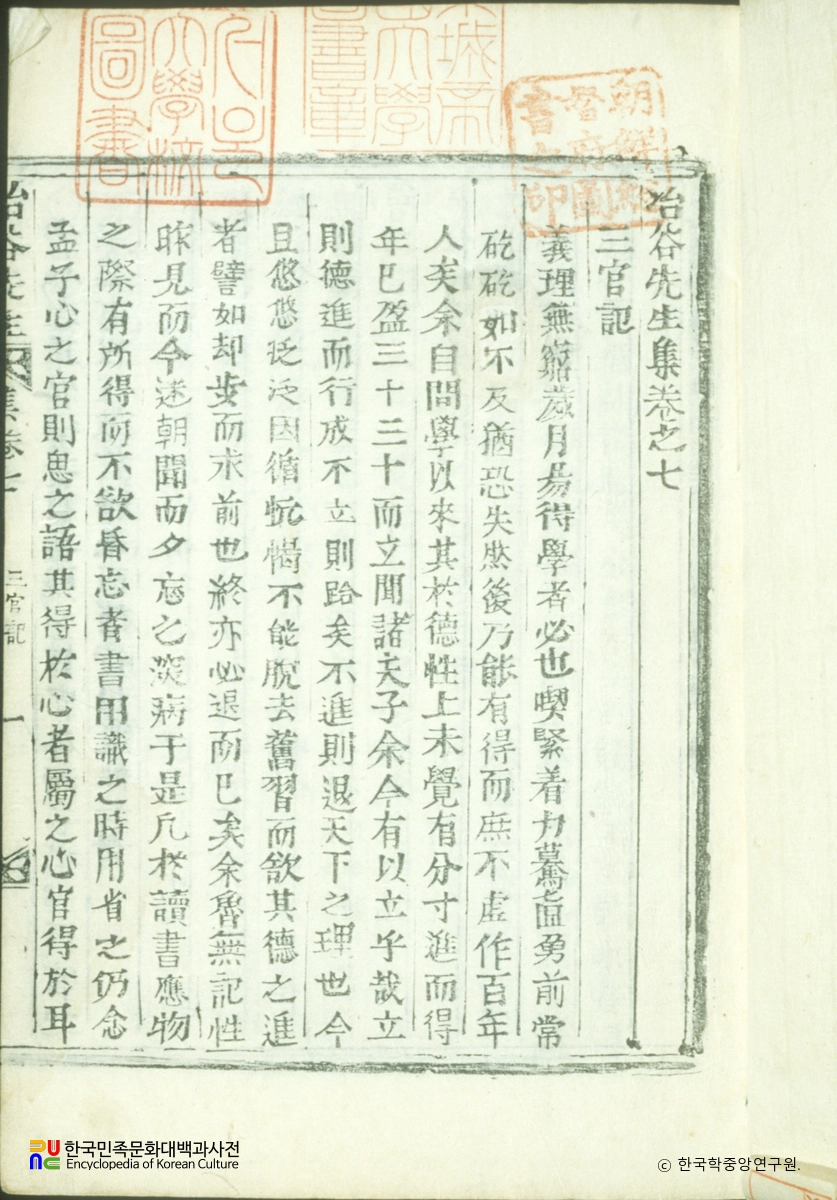 冶谷先生集卷之七
三官記
義理無窮歲月易得學者必也喫緊着力驀直勇前常
矻矻如不及猶恐失然後乃能有得而庶不虛作百年
人矣余自問學以來其於德性上未覺有分寸進而得
年已盈三十三十而立聞諸夫子余今有以立乎哉立
則德進而行成不立則跲矣不進則退天下之理也今
且悠悠泛泛因循忨愒不能脫去舊習而欲其德之進
者譬如却步而求前也終亦必退而已矣余魯無記性
昨見而今迷朝聞而夕忘之深病于是凡於讀書應物
之際有所得而不欲昏忘者書用識之時用省之仍念
孟子心之官則思之語其得於心者屬之心官得於耳
冶谷先生集卷七
三官記
一
朝鮮總督府圖書之印
한국민족문화대백과사전
Encyclopedia of Korean Culture
© 한국학중앙연구원.